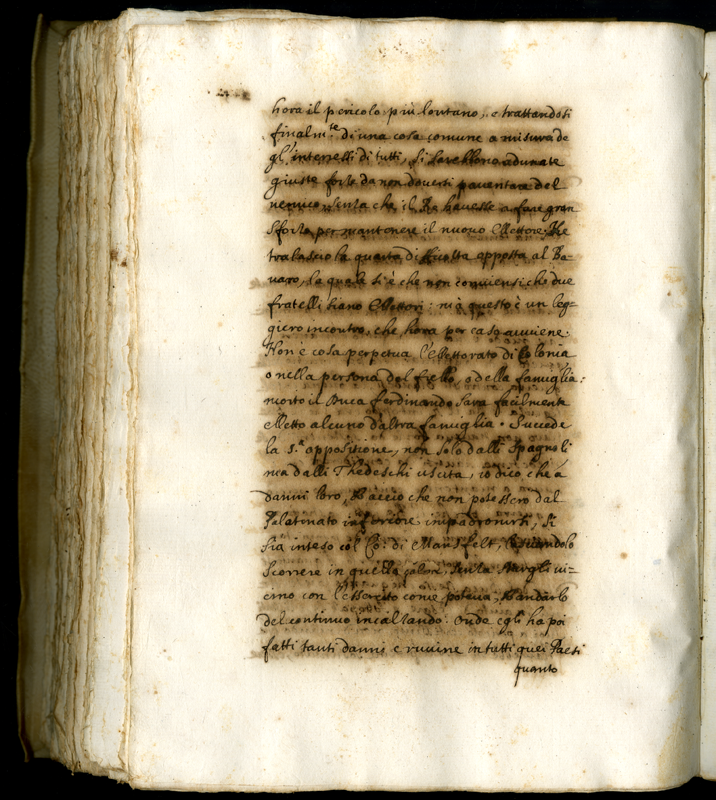 hora il pericolo più lontano, e trattandosi
finalm.te di una cosa comune a misura de
gl'interessi di tutti, si sarebbono adunate
giuste forze da non doversi paventare del
nemico, senza che il Re havesse a fare gran
sforzo per mantenere il nuovo Elettore. Ne
tralascio la quarta difficoltà opposta al Ba-
varo, la quale si è che non conviensi che due
fratelli siano Elettori: mà questo è un leg-
giero incontro, che hora per caso avviene.
Non è cosa perpetua l'Elettorato di Colonia
o nella persona del frello, o della famiglia:
morto il Duca Ferdinando sara facilmente
eletto alcuno d'altra famiglia. Succede
la 5.a oppositione, non solo dalli Spagnoli
ma dalli Thedeschi uscita, io dico che à
danni loro, & accio che non potessero dal
Palatinato inferiore impadronirsi, si
sia inteso col Co: di Mansfelt, lasciandolo
scorrere in quella, senza stargli vi-
cino con l'essercito come poteva, & andarlo
del continuo incalzando. onde egli ha poi
fatti tanti danni e ruvine in tutti quei Paesi
quanto